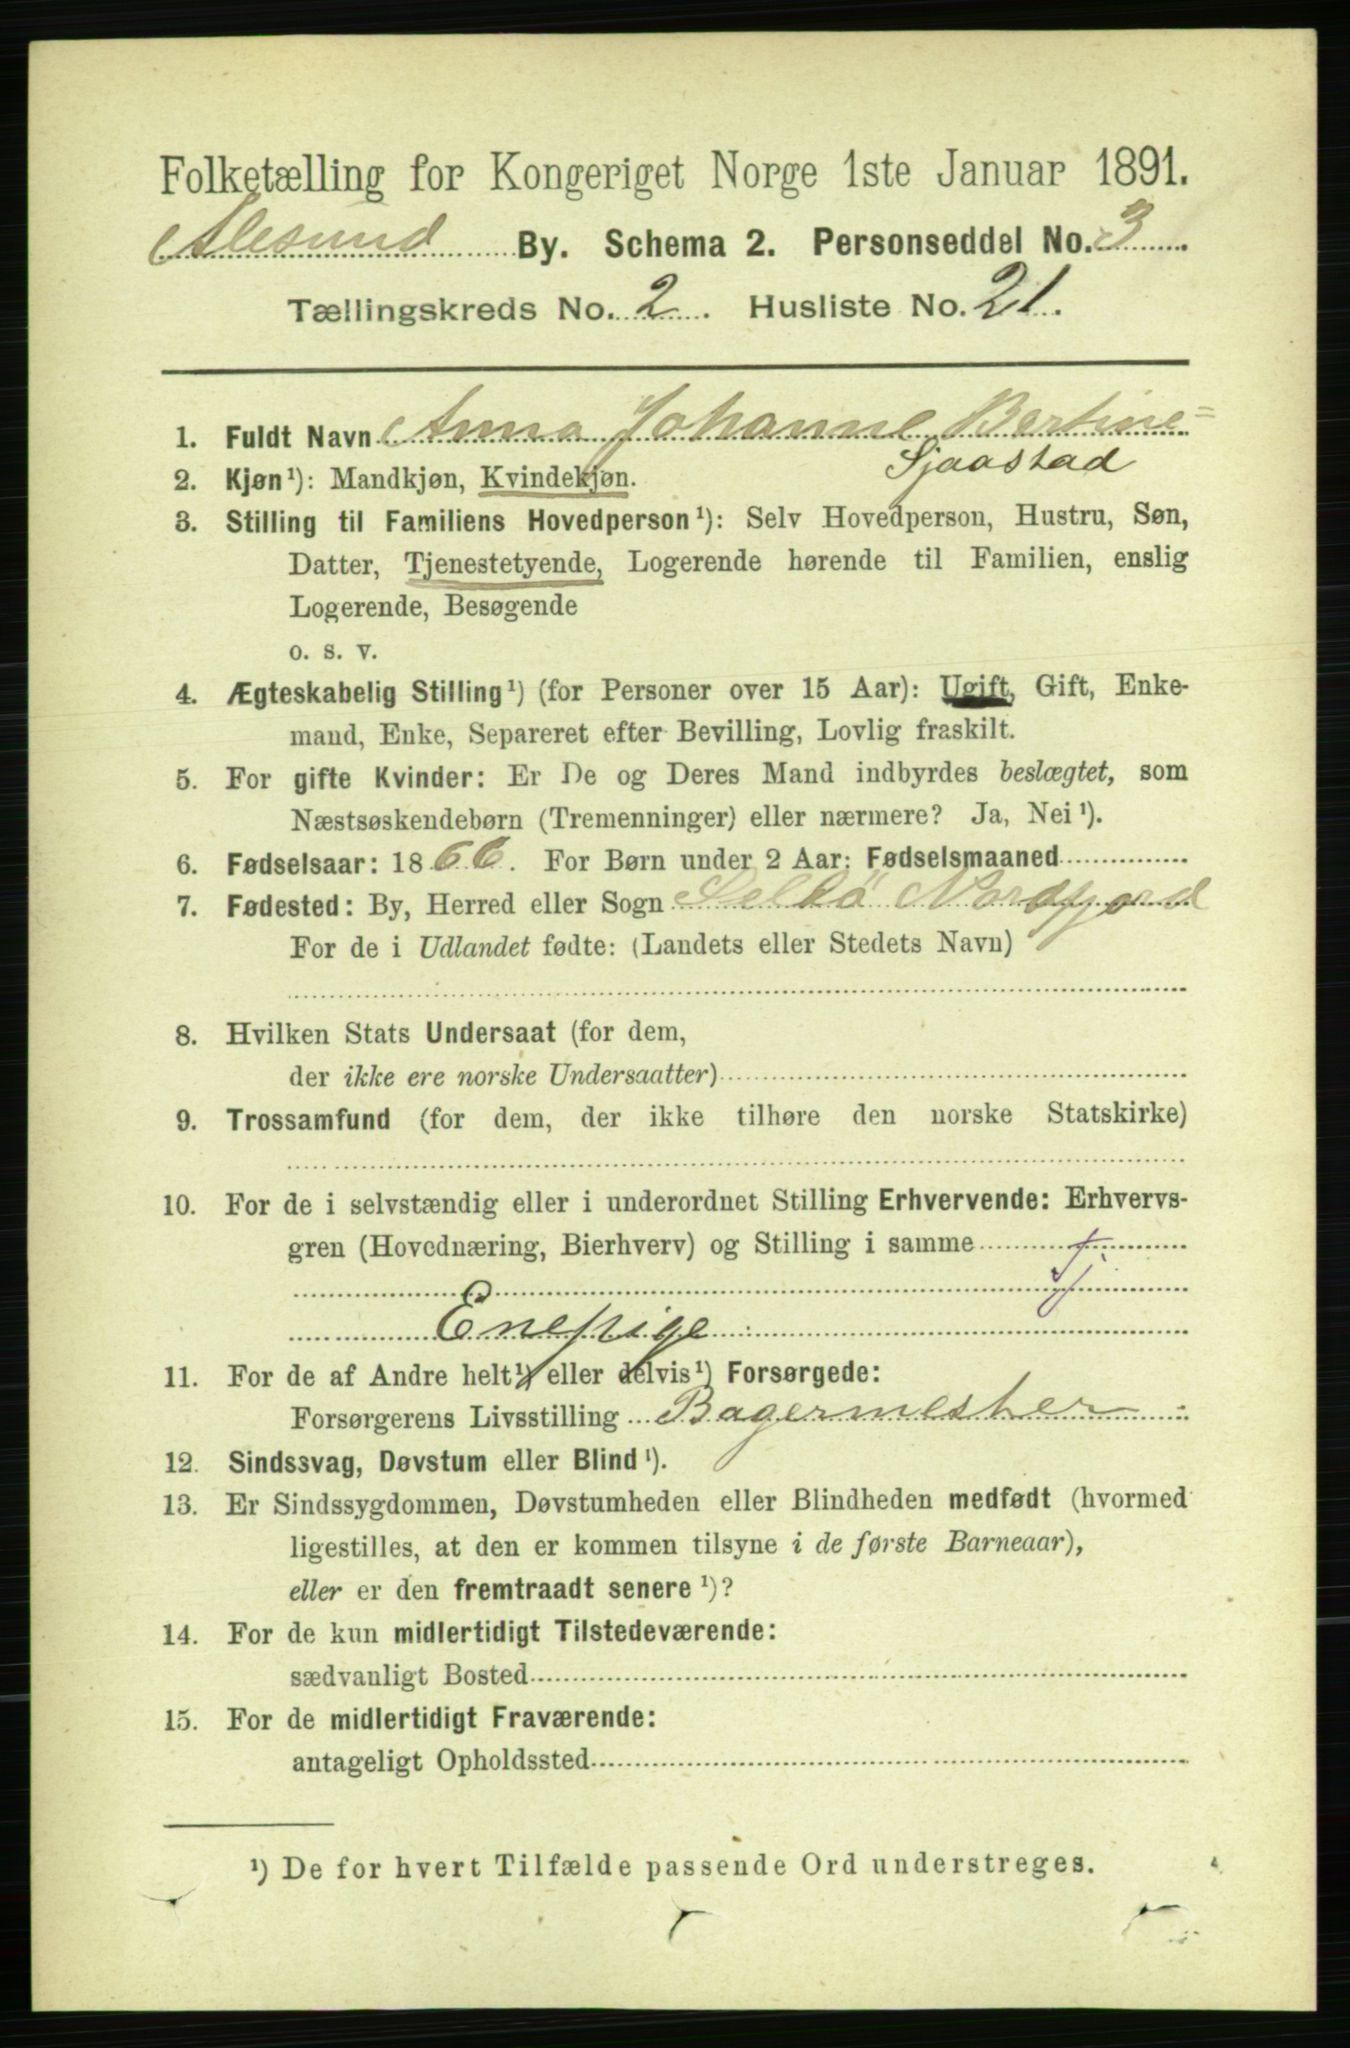 Folketælling for Kongeriget Norge 1ste Januar 1891.
Alesund By. Schema 2. Personseddel No. 3
Tællingskreds No. 2. Husliste No. 21.
1. Fuldt Navn Anna Johanne Bertine=
Sjaastad
2. Kjøn¹): Mandkjøn, Kvindekjøn.
3. Stilling til Familiens Hovedperson¹): Selv Hovedperson, Hustru, Søn,
Datter, Tjenestetyende, Logerende hørende til Familien, enslig
Logerende, Besøgende
o. s. v.
4. Ægteskabelig Stilling¹) (for Personer over 15 Aar): Ugift, Gift, Enke-
mand, Enke, Separeret efter Bevilling, Lovlig fraskilt.
5. For gifte Kvinder: Er De og Deres Mand indbyrdes beslægtet, som
Næstsøskendebørn (Tremenninger) eller nærmere? Ja, Nei¹).
6. Fødselsaar: 1866. For Børn under 2 Aar: Fødselsmaaned
7. Fødested: By, Herred eller Sogn Selbö Nordfjord
For de i Udlandet fødte: (Landets eller Stedets Navn)
8. Hvilken Stats Undersaat (for dem,
der ikke ere norske Undersaatter)
9. Trossamfund (for dem, der ikke tilhøre den norske Statskirke)
10. For de i selvstændig eller i underordnet Stilling Erhvervende: Erhvervs-
gren (Hovednæring, Bierhverv) og Stilling i samme
Tj
Enepige
11. For de af Andre helt¹) eller delvis¹) Forsørgede:
Forsørgerens Livsstilling Bagermester
12. Sindssvag, Døvstum eller Blind¹).
13. Er Sindssygdommen, Døvstumheden eller Blindheden medfødt (hvormed
ligestilles, at den er kommen tilsyne i de første Barneaar),
eller er den fremtraadt senere¹)?
14. For de kun midlertidigt Tilstedeværende:
sædvanligt Bosted
15. For de midlertidigt Fraværende:
antageligt Opholdssted
¹) De for hvert Tilfælde passende Ord understreges.